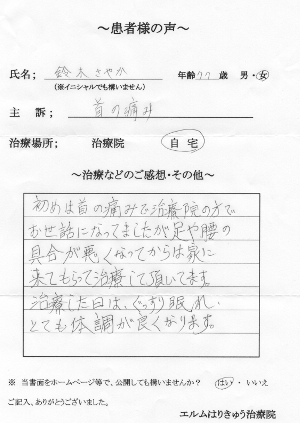 ～患者様の声～
氏名； 鈴木さやか 年齢 77 歳 男・女
（※イニシャルでも構いません）
主 訴； 首の痛み
治療場所； 治療院 自宅
～治療などのご感想・その他～
初めは首の痛みで治療院の方で
お世話になってましたが足や腰の
具合が悪くなってからは家に
来てもらって治療して頂いてます。
治療した日は、ぐっすり眠れ、
とても体調が良くなります。
※ 当書面をホームページ等で、公開しても構いませんか？ はい・いいえ
ご記入、ありがとうございました。
エルムはりきゅう治療院